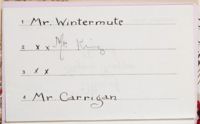 1 Mr. Wintermute
2 x x Mr. King
3 x x
4 Mr. Carrigan